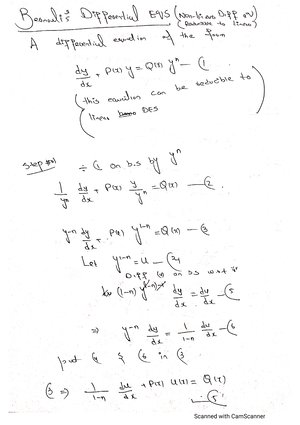 Bernouli's Differential EQ'S (Non-linear Diff eq)
(Reducible to linear)
A differential equation of the form
dy/dx + P(x) y = Q(x) y^n —(1
(this equation can be reducible to
linear DES)
Step #01 ÷ (1 on b.s by y^n
1/y^n dy/dx + P(x) y/y^n = Q(x) —(2
y^-n dy/dx + P(x) y^1-n = Q(x) —(3
Let y^1-n = u —(4
Diff (4) on b.s w.r.t x
(1-n) y^-n dy/dx = du/dx —(5
⇒ y^-n dy/dx = 1/1-n du/dx —(6
put (4 & (6 in (3
(3 ⇒ 1/1-n du/dx + P(x) u(x) = Q(x)
—(5
Scanned with CamScanner